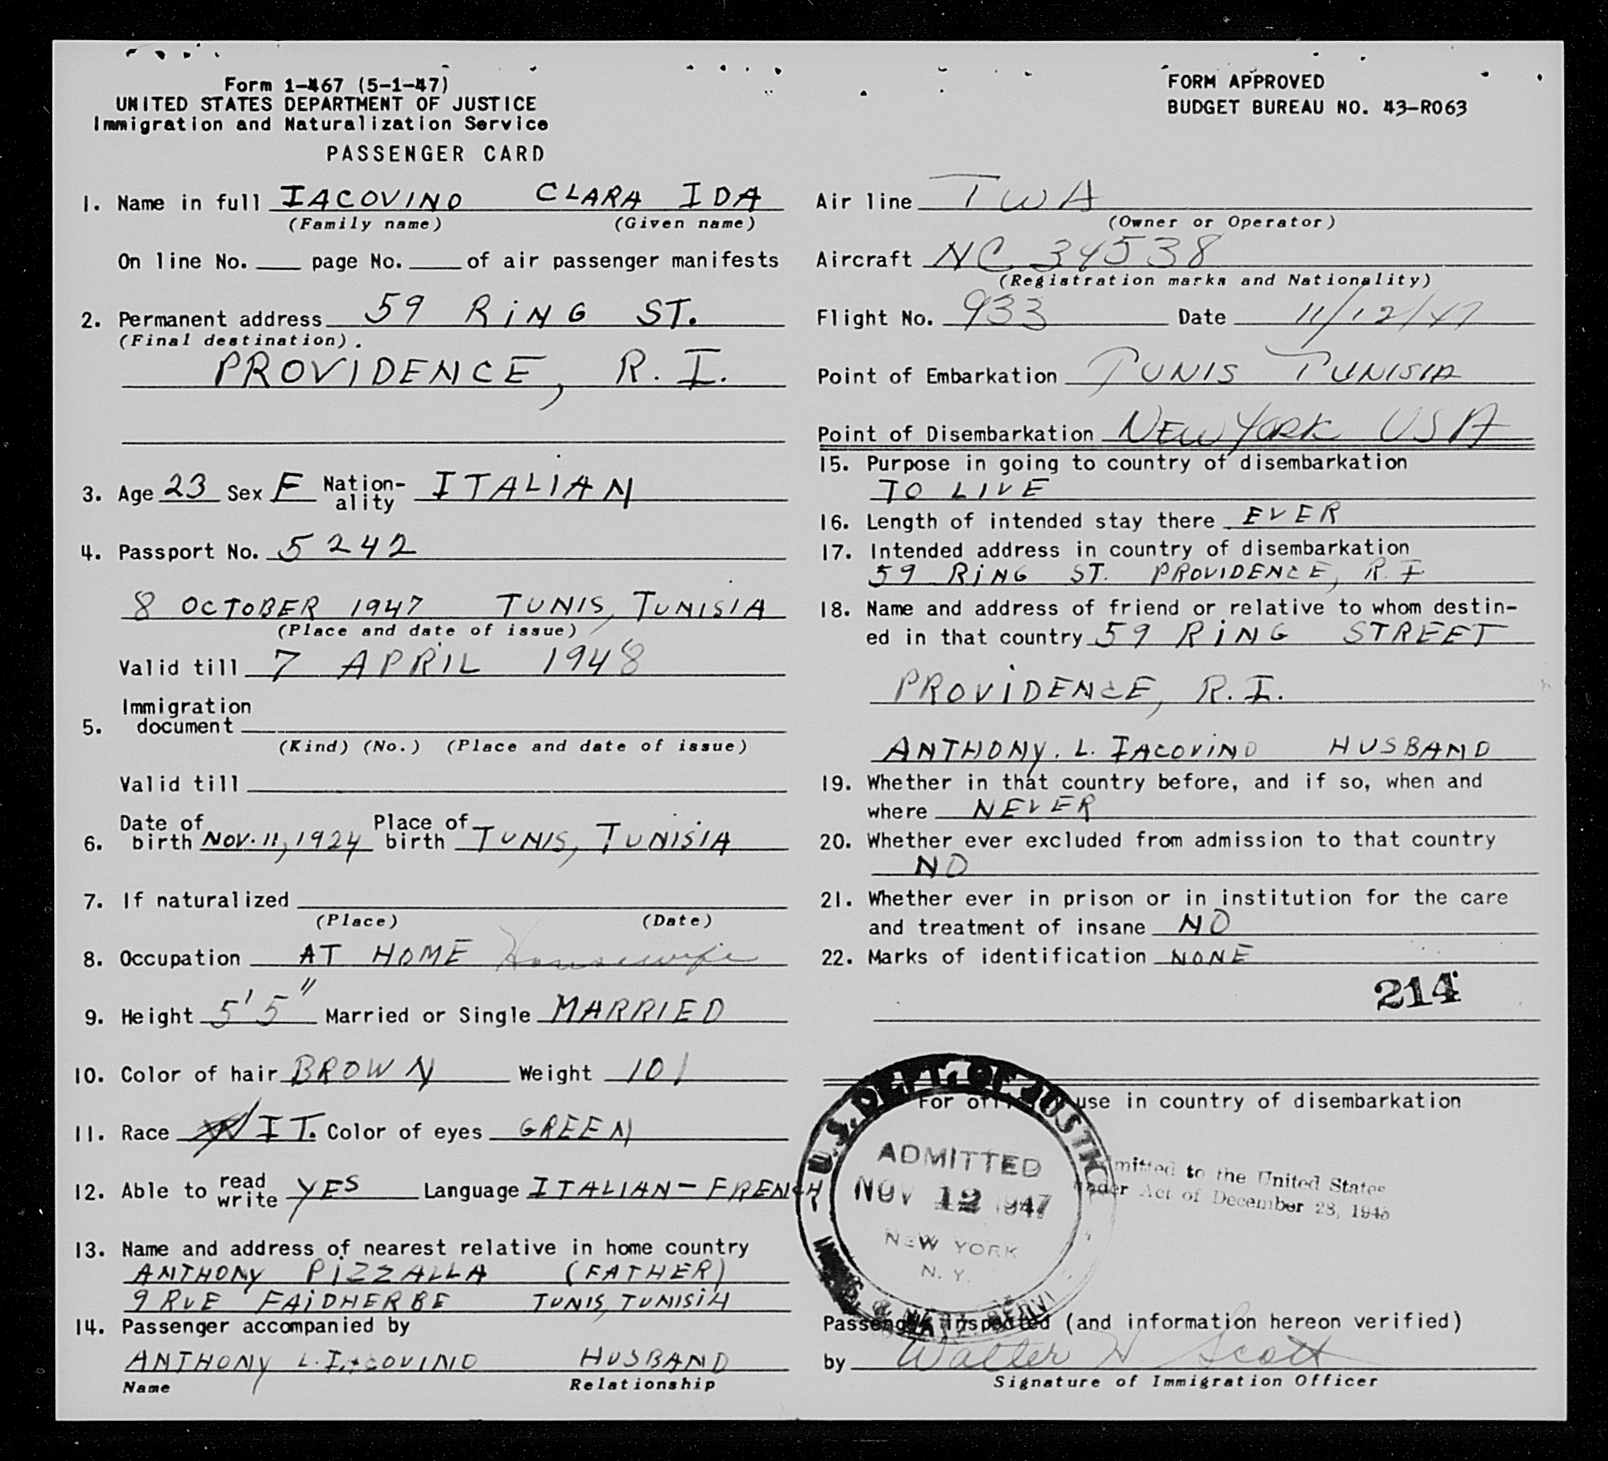 Form 1-467 (5-1-47)
UNITED STATES DEPARTMENT OF JUSTICE
Immigration and Naturalization Service
PASSENGER CARD
FORM APPROVED
BUDGET BUREAU NO. 43-R063
1. Name in full IACOVINO CLARA IDA
(Family name) (Given name)
On line No. ___ page No. ___ of air passenger manifests
2. Permanent address 59 RING ST.
(Final destination).
PROVIDENCE, R. I.
3. Age 23 Sex F Nation-ality ITALIAN
4. Passport No. 5242
8 OCTOBER 1947 TUNIS, TUNISIA
(Place and date of issue)
Valid till 7 APRIL 1948
5. Immigration document
(Kind) (No.) (Place and date of issue)
Valid till
6. Date of birth NOV. 11, 1924 Place of birth TUNIS, TUNISIA
7. If naturalized
(Place) (Date)
8. Occupation AT HOME Housewife
9. Height 5' 5" Married or Single MARRIED
10. Color of hair BROWN Weight 101
11. Race IT. Color of eyes GREEN
12. Able to read write YES Language ITALIAN - FRENCH
13. Name and address of nearest relative in home country
ANTHONY PIZZALLA (FATHER)
9 RUE FAIDHERBE TUNIS, TUNISIA
14. Passenger accompanied by
ANTHONY L. IACOVINO HUSBAND
Name Relationship
Air line TWA
(Owner or Operator)
Aircraft NC 34538
(Registration marks and Nationality)
Flight No. 933 Date 11/12/47
Point of Embarkation TUNIS TUNISIA
Point of Disembarkation NEW YORK USA
15. Purpose in going to country of disembarkation
TO LIVE
16. Length of intended stay there EVER
17. Intended address in country of disembarkation
59 RING ST. PROVIDENCE, R. I.
18. Name and address of friend or relative to whom destin-
ed in that country 59 RING STREET
PROVIDENCE, R. I.
ANTHONY. L. IACOVINO HUSBAND
19. Whether in that country before, and if so, when and
where NEVER
20. Whether ever excluded from admission to that country
NO
21. Whether ever in prison or in institution for the care
and treatment of insane NO
22. Marks of identification NONE
214
For official use in country of disembarkation
U.S. DEPT. OF JUSTICE
ADMITTED
NOV 12 1947
NEW YORK
N. Y.
IMMIG. & NATZ. SERV.
Admitted to the United States
under Act of December 28, 1945
Passenger inspected (and information hereon verified)
by Walter H Scott
Signature of Immigration Officer